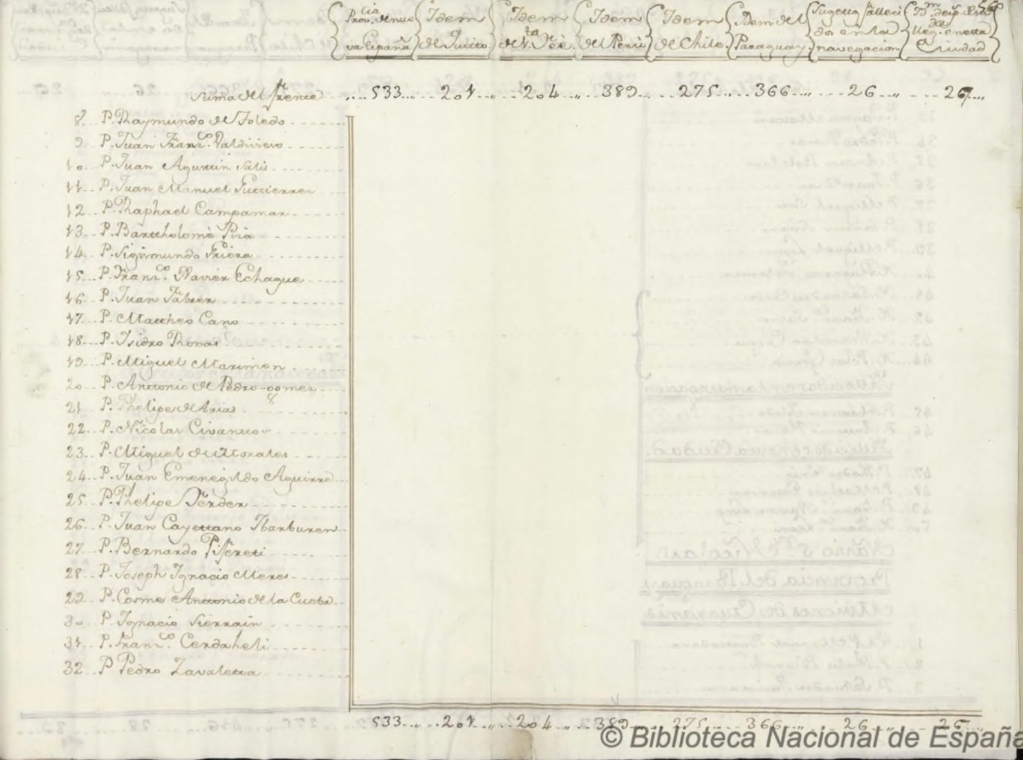 Prov.cia de nueva España Idem de Quito Idem de S.ta Fée Idem del Perú Idem de Chile Idem del Paraguay Sugetos fallecidos en la navegacion Idem Ciudad
Suma del frente 533 201 204 389 275 366 26 26
8 P. Raymundo de Toledo
9 P. Juan Fran.co Valdivieso
10 P. Juan Agustin Salis
11 P. Juan Manuel Gutierres
12 P. Raphael Campamar
13 P. Barttholomé Piza
14 P. Sigismundo Griera
15 P. Fran.co Xavier Echague
16 P. Juan Fabrer
17 P. Mattheo Cano
18 P. Isidro Thomas
19 P. Miguel Marimon
20 P. Anttonio de Pedro-gomes
21 P. Phelipe de Arias
22 P. Nicolas
23 P. Miguel de Morales
24 P. Juan Emenegildo Aguirre
25 P. Phelipe Ferder
26 P. Juan Cayettano Ibarburen
27 P. Bernardo Pifereti
28 P. Joseph Ygnacio Meres
29 P. Cosme Anttonio de la Cueba
30 P. Ygnacio
31 P. Fran.co Cerdaheli
32 P. Pedro Zavaletta
533 201 204 389 275 366 26 26
© Biblioteca Nacional de España